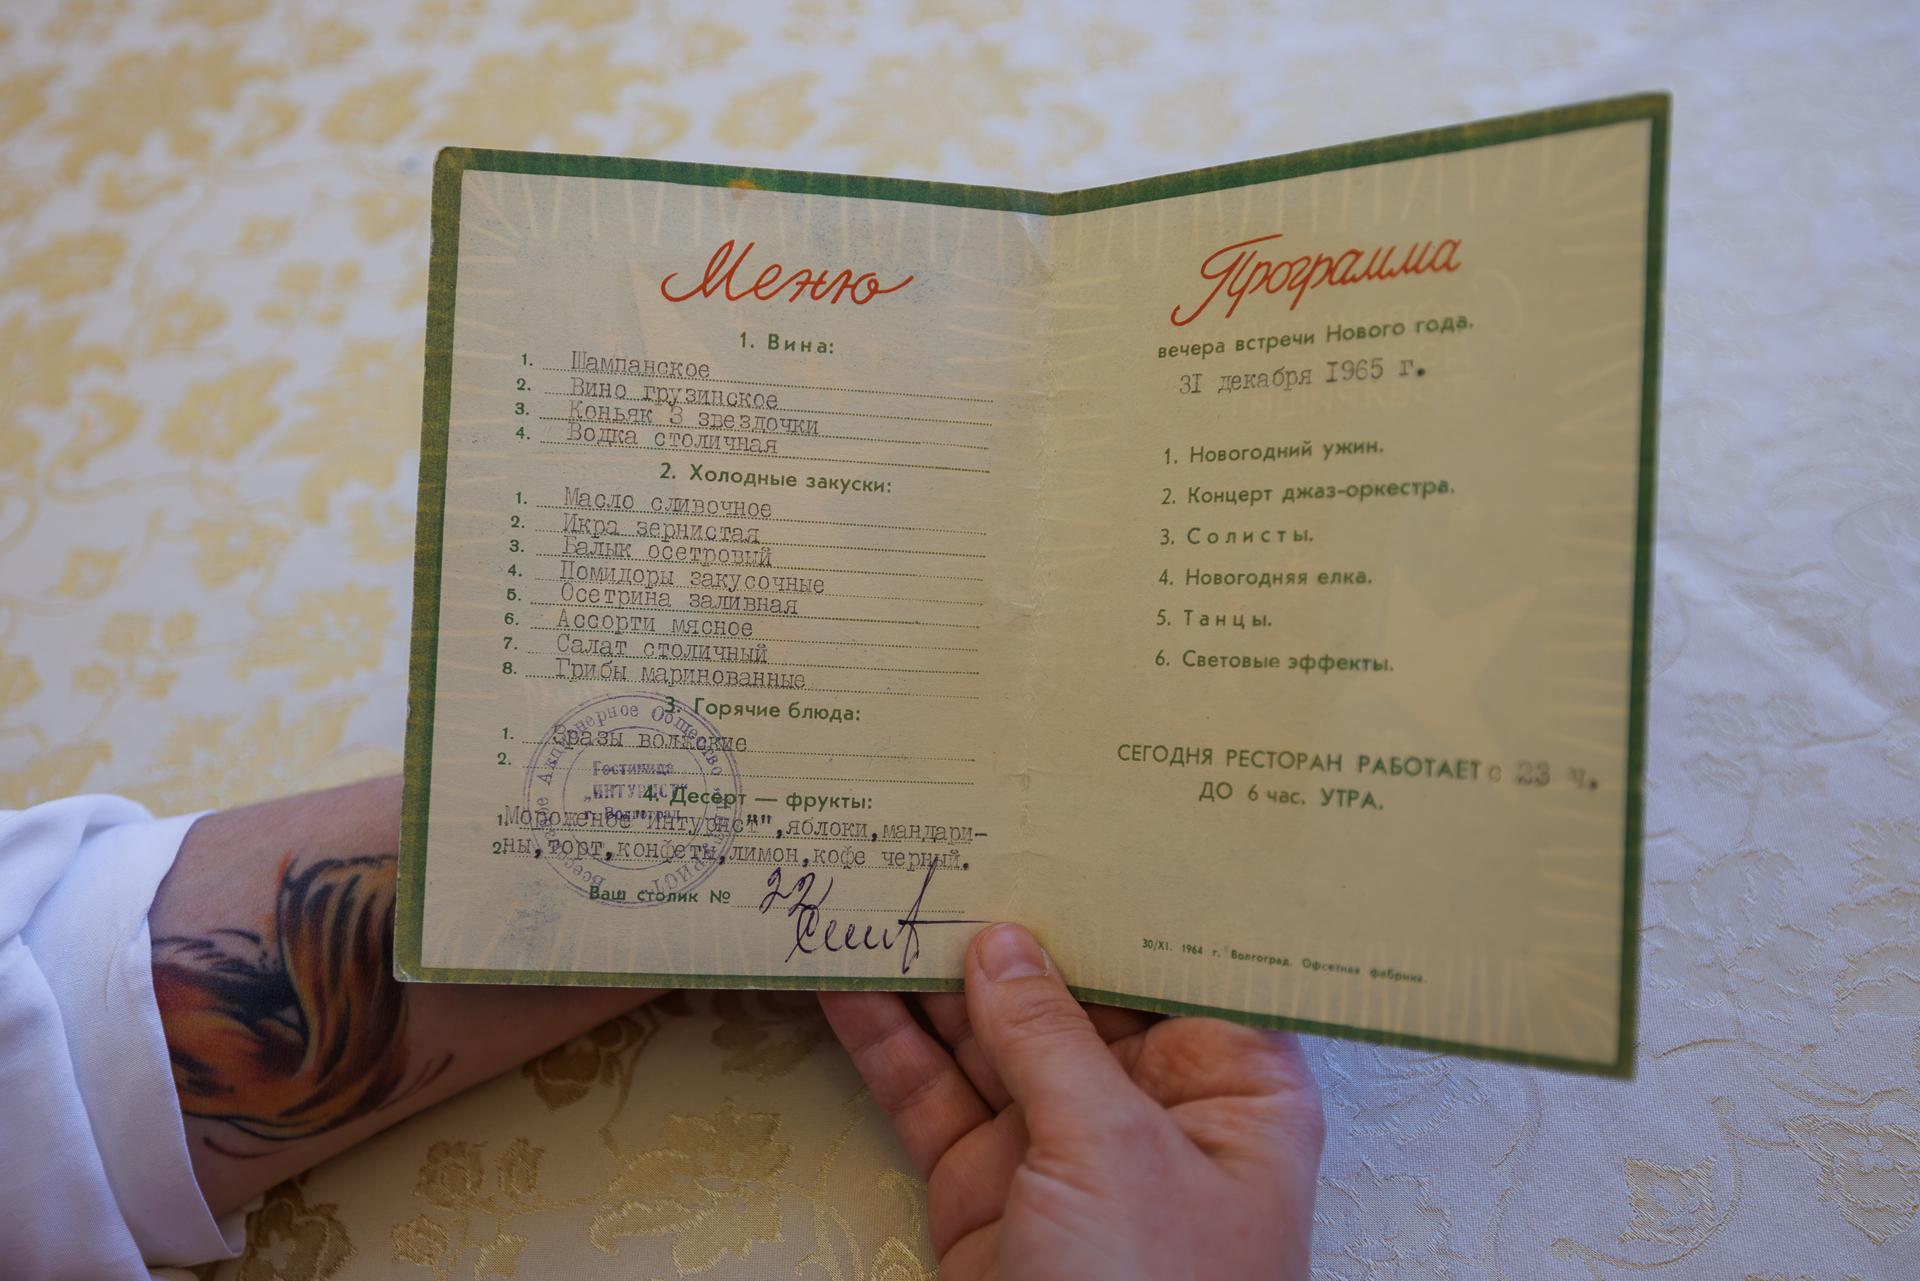 Меню
1. Вина:
1. Шампанское
2. Вино грузинское
3. Коньяк 3 звездочки
4. Водка столичная
2. Холодные закуски:
1. Масло сливочное
2. Икра зернистая
3. Балык осетровый
4. Помидоры закусочные
5. Осетрина заливная
6. Ассорти мясное
7. Салат столичный
8. Грибы маринованные
3. Горячие блюда:
1. Зразы волжские
2.
4. Десерт — фрукты:
1. Мороженое "Интурист", яблоки, мандари-
2. ны, торт, конфеты, лимон, кофе черный.
Ваш столик № 22
Всесоюзное Акционерное Общество
Гостиница
"ИНТУРИСТ"
г. Волгоград
Программа
вечера встречи Нового года.
31 декабря 1965 г.
1. Новогодний ужин.
2. Концерт джаз-оркестра.
3. Солисты.
4. Новогодняя елка.
5. Танцы.
6. Световые эффекты.
СЕГОДНЯ РЕСТОРАН РАБОТАЕТ с 23 ч.
ДО 6 час. УТРА.
30/XI. 1964 г. Волгоград. Офсетная фабрика.